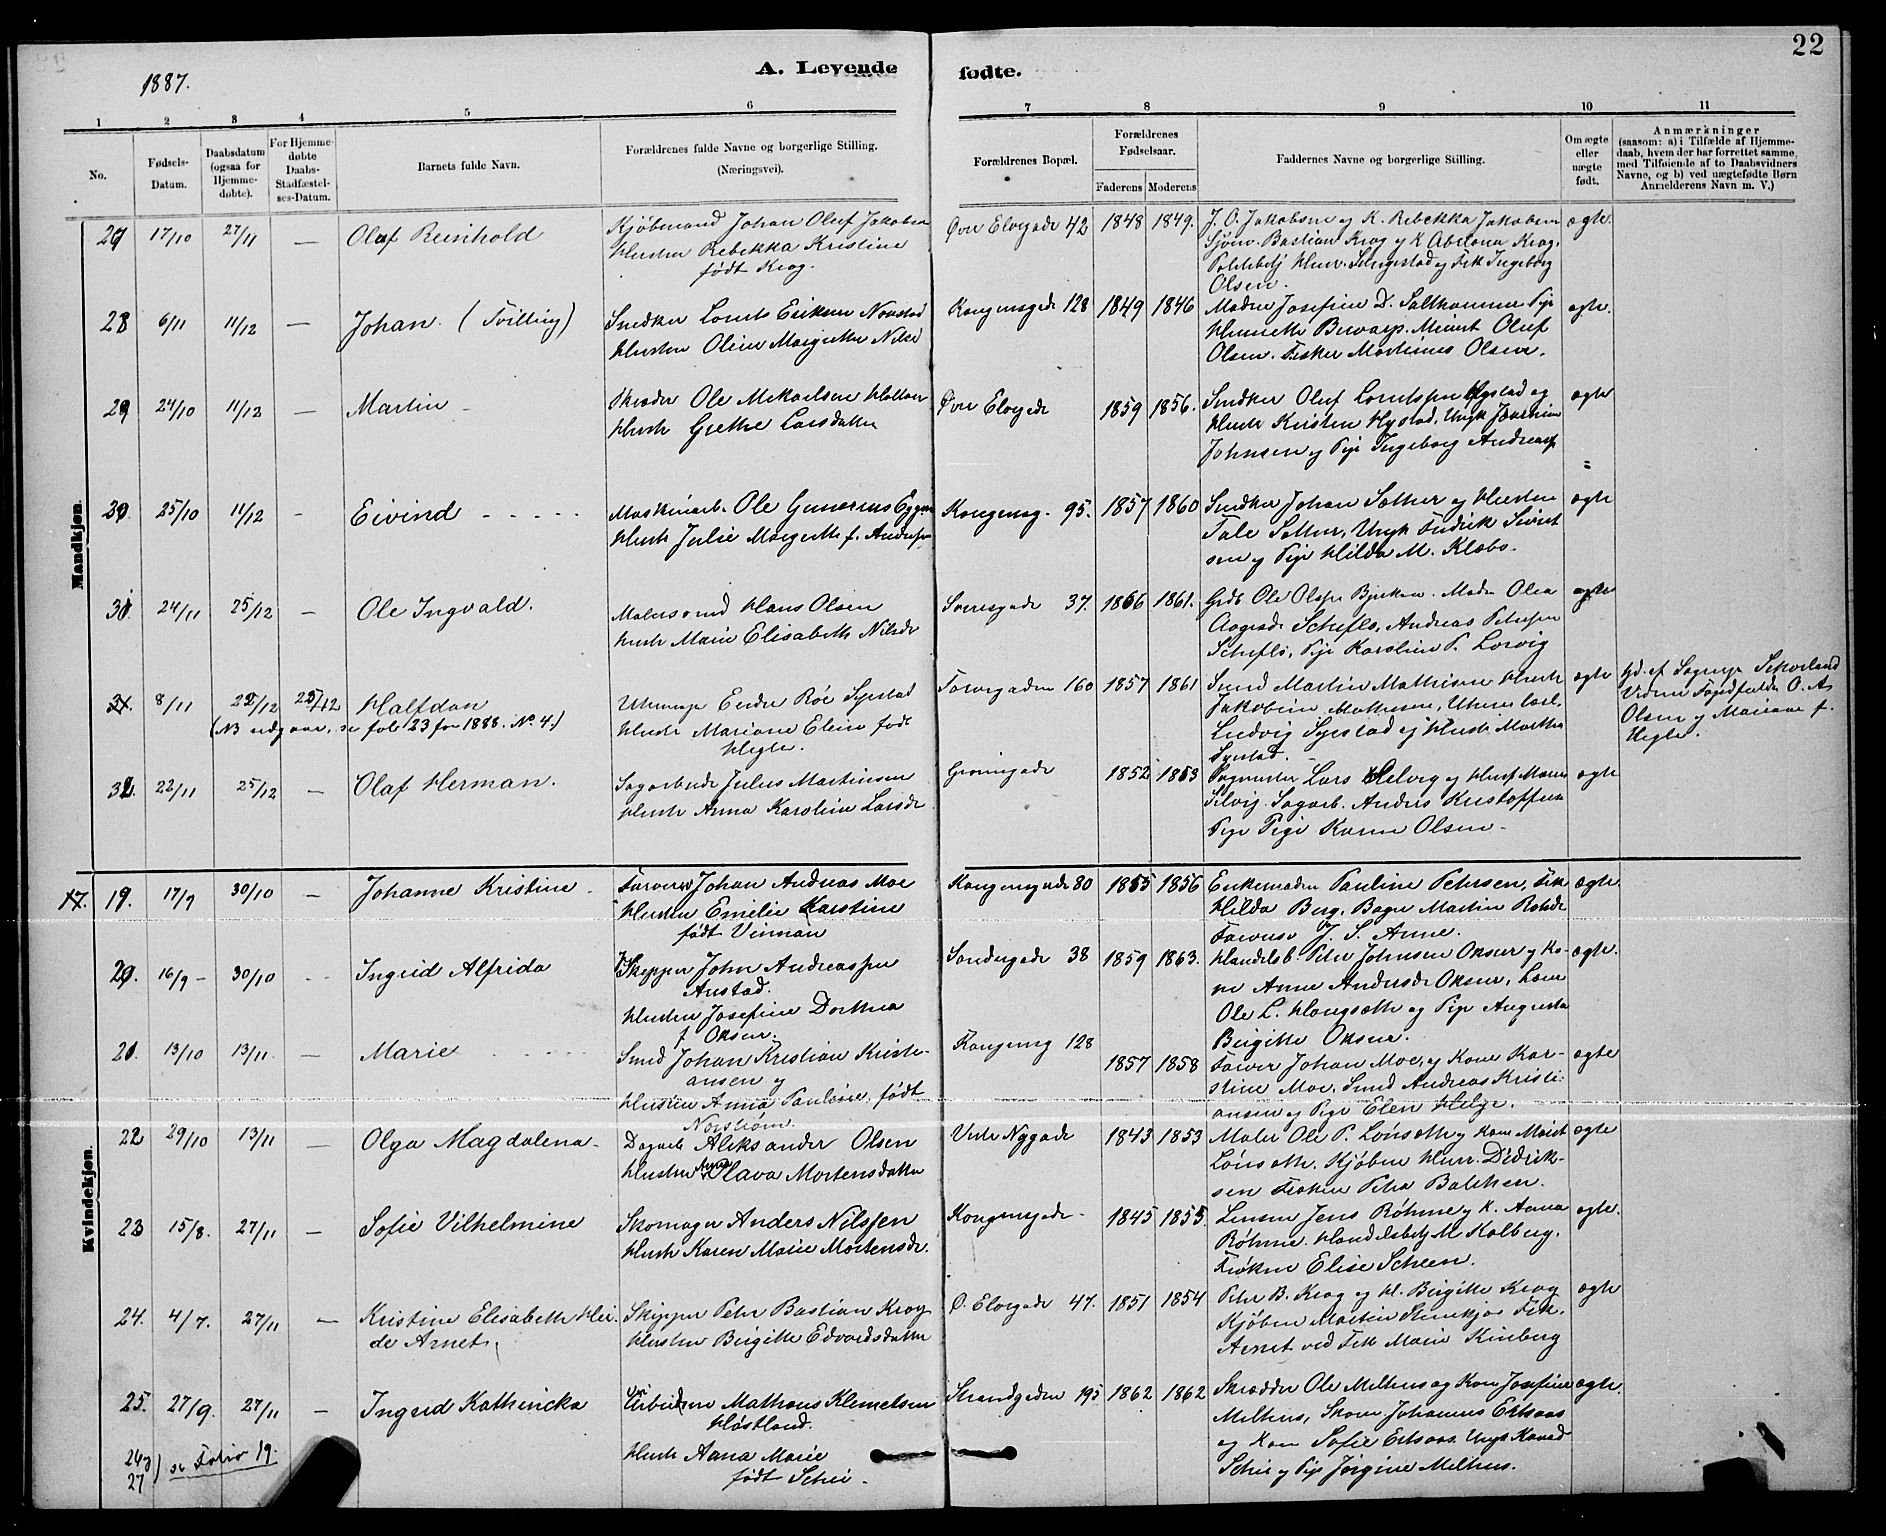 22
1887.
A. Levende fødte.
1 2 3 4 5 6 7 8 9 10 11
No.
Fødsels-Datum.
Daabsdatum (ogsaa for Hjemme-døbte).
For Hjemme-døbte Daabs-Stadfæstel-ses-Datum.
Barnets fulde Navn.
Forældrenes fulde Navne og borgerlige Stilling.
(Næringsvei).
Forældrenes Bopæl.
Forældrenes Fødselsaar.
Faderens Moderens
Faddernes Navne og borgerlige Stilling.
Om ægte eller uægte født.
Anmærkninger
(saasom: a) i Tilfælde af Hjemme-
daab, hvem der har forrettet samme,
med Tilføiende af to Daabsvidners
Navne, og b) ved uægtefødte Børn
Anmelderens Navn m. V.)
Mandkjøn.
27 17/10 27/11 — Olaf Reinhold
Kjøbmand Johan Oluf Jakobsen
Hustru Rebekka Kristine
født Krog.
Øvre Elvegade 42 1848 1849.
J. O. Jakobsen og K. Rebekka Jakobsen
Bastian Krog og K Abelona Krog.
Ingeborg
Olsen.
ægte.
28 6/11 11/12 — Johan. (Tvilling)
Snedker Lorents Eriksen
Hustru Oline Margrethe
Kongensgade 128 1849 1846
Madm Josefine D. Salthammer Pige
Oluf
Olsen. Fisker Martinus Olsen.
ægte.
29 24/10 11/12 — Martin
Skræder Ole Mekaelsen
Hustr Grethe Larsdatter
Øvre Elvegade 1859 1856.
Snedker Oluf Lorntssen Hystad og
Hustr Kristen Hystad, Ungk
Johnsen og Pige Ingeborg Andreass
ægte
30 25/10 11/12 - Eivind
Maskinarb. Ole Gunerius
Hustr Julie Margrethe f.
Kongensg. 95. 1857 1860
Snedker Johan Sæther og Hustru
Ungk Fredrik Sivert
sen og Pige Hilda M. Klæbo.
ægte
31. 24/11 25/12 — Ole Ingvald.
Malersvend Hans Olsen
Hustr Marie Elisabeth Nilsdr
Sverresgade 37. 1866 1861.
Ole Olsen Madm Olea
Andreas Petersen
Pige Karoline P. Lorvig
ægte
8/11 22/12 25/12 Halfdan
(NB udgaar, se fol 23 for 1888. No. 4.)
Uhrmager
Hustr Mariane Eline født
Hegle.
160 1857 1861
Smed Martin Mathisen Hustr
Jakobine Mathisen,
Ludvig Syrstad og Hustr Martha
Syrstad.
ægte
Olsen og Mariane f.
Hegle.
32. 22/11 25/12 — Olaf Herman.
Sagarbeider Julius Martinsen
Hustr Anna Karoline Larsdr
1852 1853
Lars Selvig og Hustr Maren
Selvig. Sagarb. Anders Kristoffersen
Pige Pige Karen Olsen -
ægte
Kvindekjøn.
17. 19. 17/9 30/10 — Johanne Kristine
Farver Johan Andreas Moe
Hustru Emilie Karstine
født Vinman
Kongensgade 80 1855 1856
Enkemadm Pauline Petersen, Frk
Hilda Berg. Bager Martin Rohde
Farversv J. S. Anne.
ægte.
20. 16/9 - 30/10 Ingrid Alfrida
Skipper John Andreassen
Anstad.
Hustru Josefine Dorthea
f Oksnr.
Søndregade 38 1859 1863.
Handelsb. Peter Johnsen Oksnr og Ko-
ne Anne Andersdr Oksnr,
Ole L. Hongseth og Pige Augusta
Birgitte Oksnr.
ægte.
21. 13/10 13/11. — Marie
Smed Johan Kristian Kristi-
ansen og
Hustru Anna Pauline født
Norstrøm.
Kongensg 128 1857 1858
Farver Johan Moe, og Kone Kar-
stine Moe, Smed Andreas Kristi-
ansen og Pige Elen Helge.
ægte
22 29/10 13/11 — Olga Magdalena
Dagarb Aleksander Olsen
Hustru Anna Olava Mortensdatter
Vestre Nygade 1843 1853
Maler Ole P. Lønseth og Kone
Lønseth. Kjøbm Didrik-
sen Frøken Petra Bakken.
ægte
23 15/8. 27/11 — Sofie Vilhelmine
Skomager Anders Nilssen
Hustr Karen Marie Mortensdr.
Kongensgade 1845 1855.
Jens Røhme og K. Anna
Røhme. Handelsbetj M Kolberg.
Frøken Elise Scheen.
ægte.
24. 4/7. 27/11 — Kristine Elisabeth Hei
de Arnet.
Skipper Petr Bastian Krog
Hustru Birgitte Edvardsdatter
Ø. Elvegade 47. 1851 1854
Petr B. Krog og H. Birgitte Krog
Kjøbm Martin Stenkjær Frk.
Arnet ved Frk Marie Kinberg
ægte
25. 27/9. 27/11 — Ingrid Kathincka
Arbeider Mathæus Klemetsen
Høstland.
Hustr Anna Marie
født Schei.
Strandgaden 195 1862 1862
Skrædder Ole Melhus og Kone Josefine
Melhus, Skom Johannes Ertsaas
og Kone Sofie Ertsaas. Ungk Konrad
Schei og Pige Jørgine Melhus.
ægte.
26 og
27 ) se Folio 19.